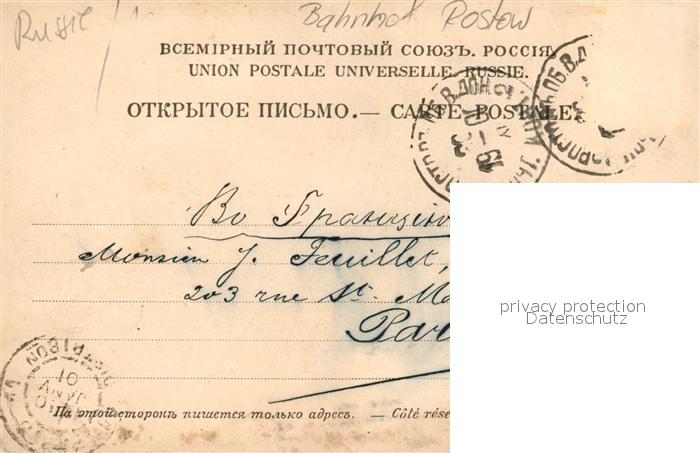 Russie
Bahnhof Rostow
ВСЕМІРНЫЙ ПОЧТОВЫЙ СОЮЗЪ. РОССІЯ.
UNION POSTALE UNIVERSELLE. RUSSIE.
ОТКРЫТОЕ ПИСЬМО.— CARTE POSTALE.
Во Францію
Monsieur J. Feuillet,
203 rue St. Ma
Par
privacy protection
Datenschutz
DISTRIBUTION
01
На этой сторонѣ пишется только адресъ. — Côté rése